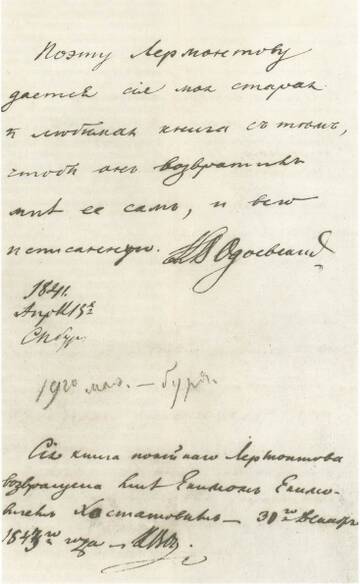 Поэту Лермонтову
дается сія моя старая
и любимая книга съ тѣмъ,
чтобы онъ возвратилъ
мнѣ ее самъ, и всю
исписанную. К В Одоевскій
1841.
Апреля 13 е
СПбур.
19го мая. – буря.
Сія книга покойнаго Лермонтова
возвращена мнѣ Екимомъ Екимо-
вичемъ Хостатовымъ – 30го Декабря
1843го года – К В О